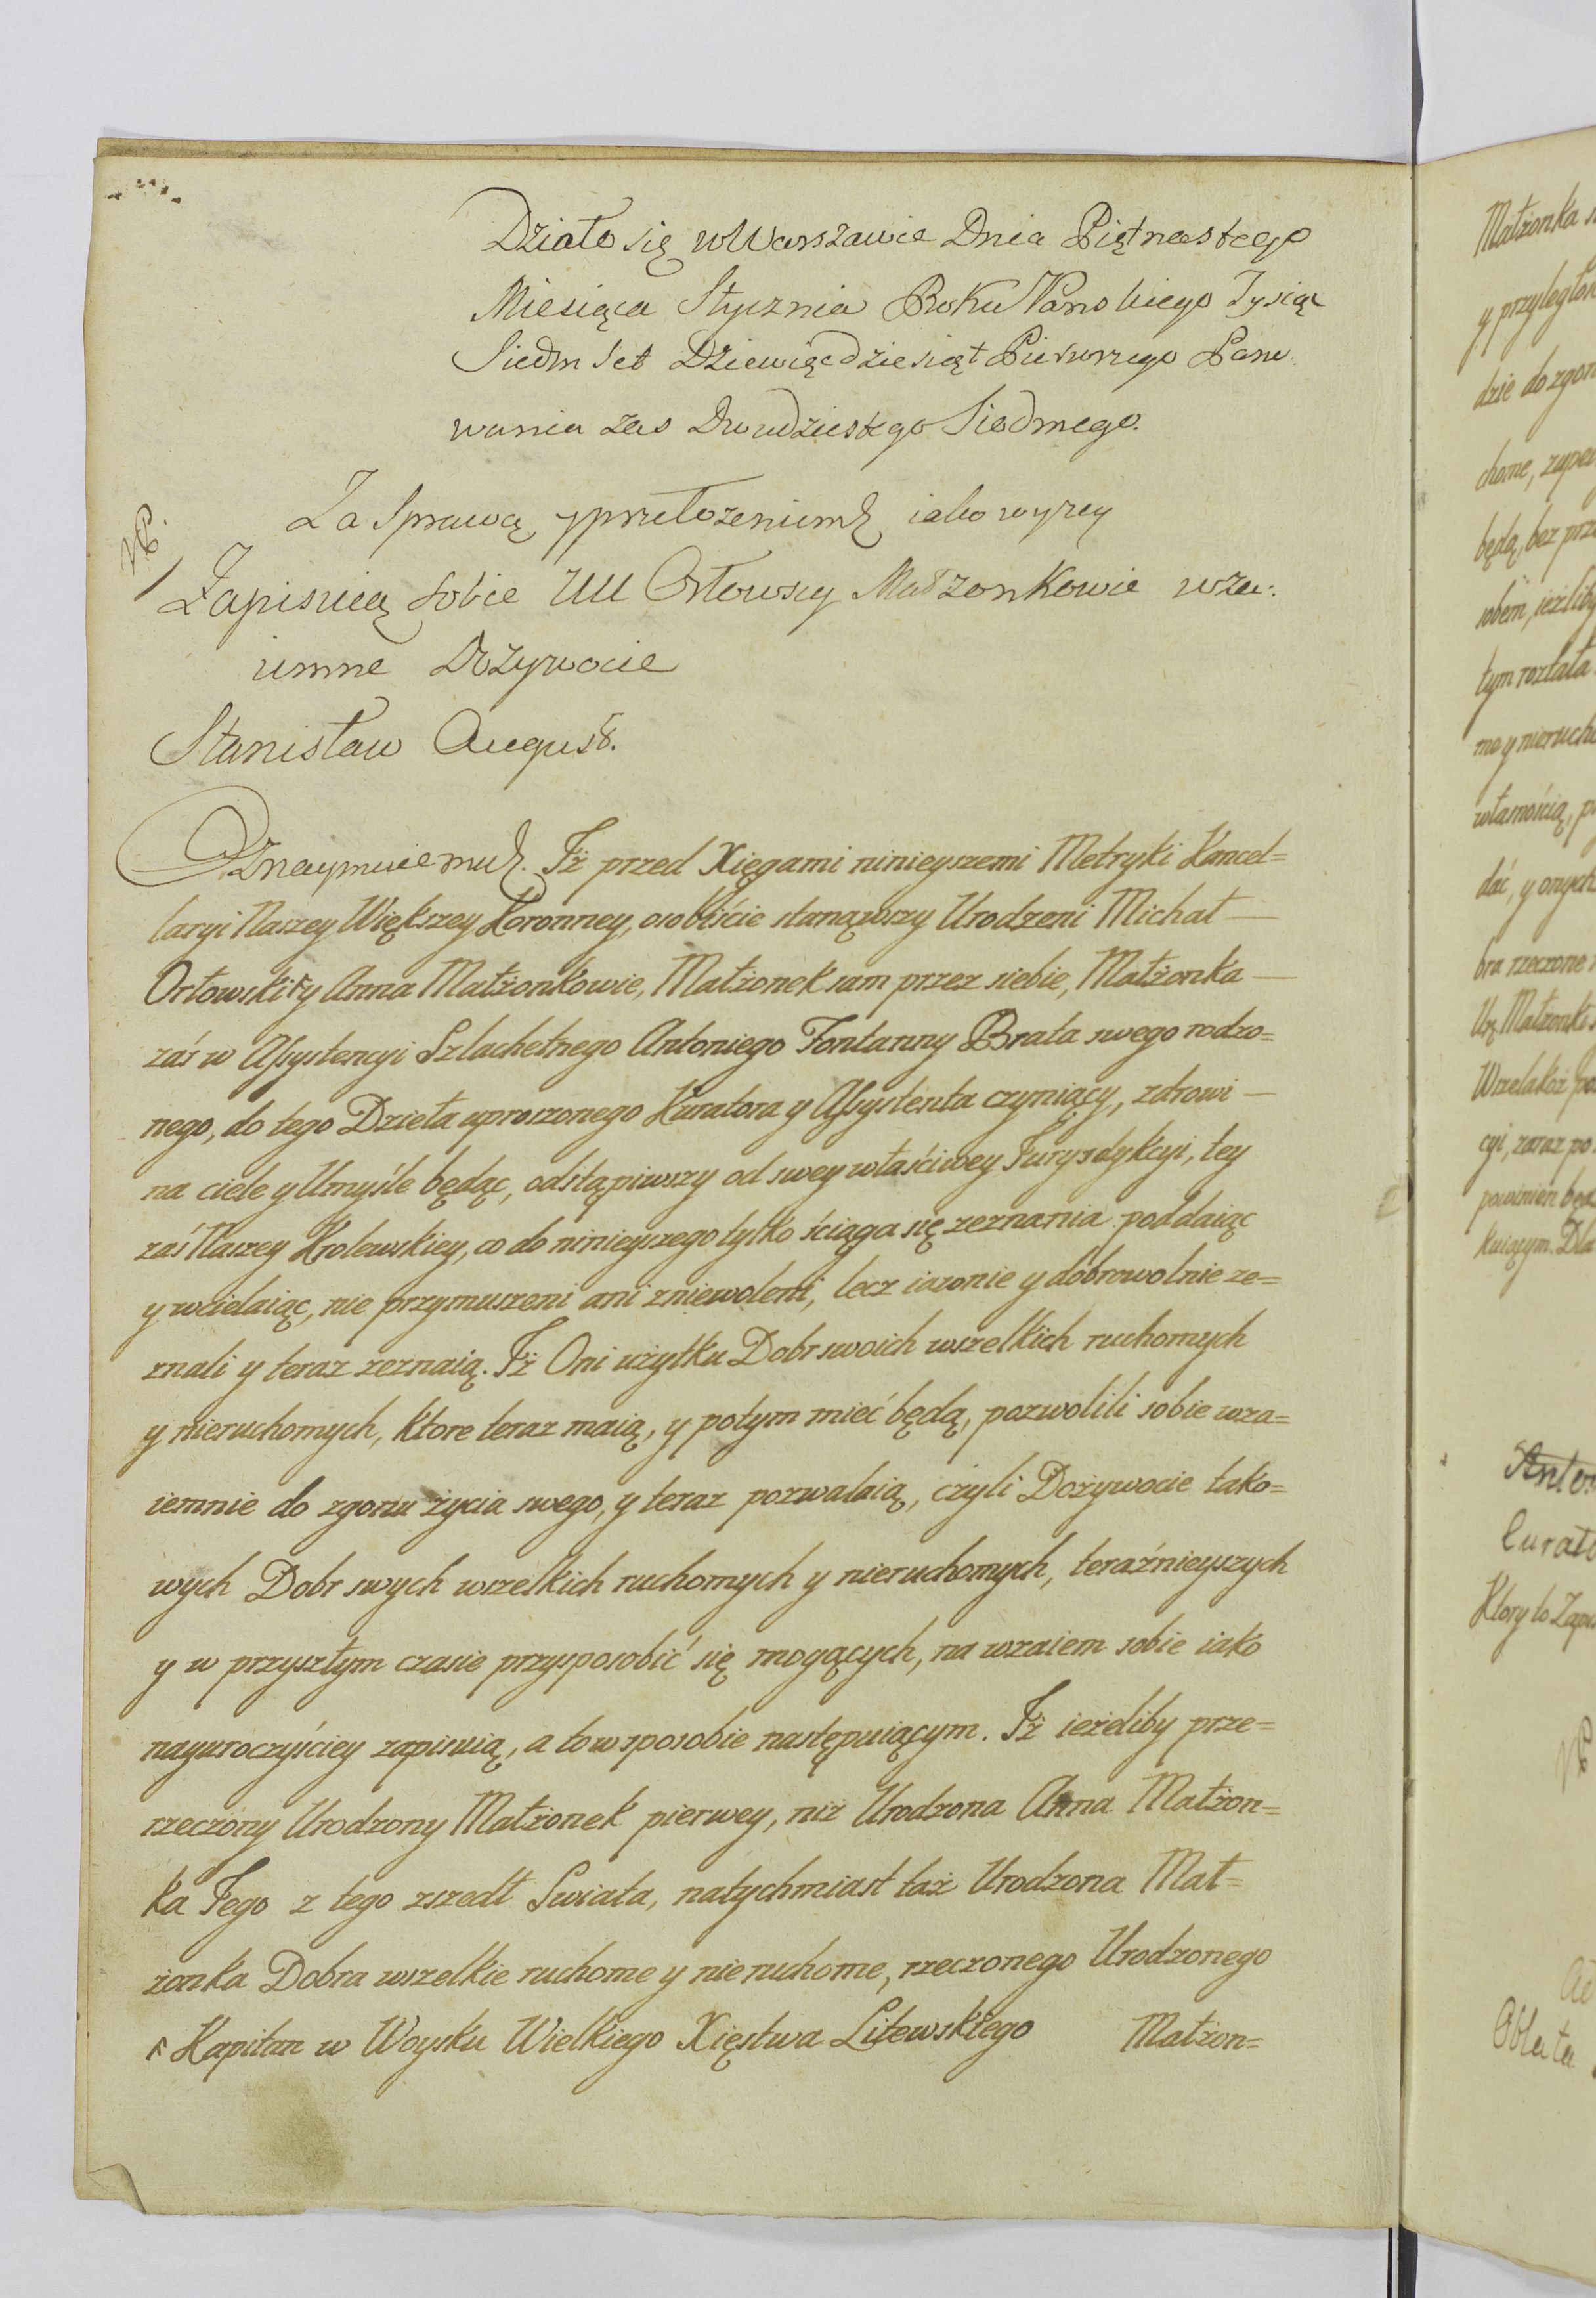 Działo się w Warszawie Dnia Piętnastego
Miesiąca Stycznia Roku Panskiego Tysiąc
Siedm Set Dziewięcdziesiąt Pierwszego Pano-
wania zas Dwudziestego Siodmego.
Za Sprawą y przełozeniem iako wyzey
NB.
Zapisuią sobie UU Orłowscy Małzonkowie wza-
iemne Dozywocie
Stanisław August.
Oznaymuiemy. Iż przed Xięgami ninieyszemi Metryki Kancel=
laryi Naszey Większey Koronney, osobiście stanąwszy Urodzeni Michał —
Orłowski ꜛ y Anna Małżonkowie, Małżonek sam przez siebie, Małżonka —
zaś w Assystencyi Szlachetnego Antoniego Fontanny Brata swego rodzo=
nego, do tego Dzieła uproszonego Kuratora y Assystenta czyniący, zdrowi —
na ciele y Umyśle będąc, odstąpiwszy od swey właściwey Jurysdykcyi, tey
zaś Naszey Krolewskiey, co do ninieyszego tylko ściąga się zeznania poddaiąc
y wcielaiąc, nie przymuszeni ani zniewoleni, lecz iawnie y dobrowolnie ze=
znali y teraz zeznaią. Iż Oni użytku Dobr swoich wszelkich ruchomych
y nieruchomych, ktore teraz maią, y potym mieć będą, pozwolili sobie wza=
iemnie do zgonu życia swego, y teraz pozwalaią, czyli Dożywocie tako=
wych Dobr swych wszelkich ruchomych y nieruchomych, teraźnieyszych
y w przyszłym czasie przysposobić się mogących, na wzaiem sobie iako
nayuroczyściey zapisuią, a to w sposobie następuiącym. Iż ieżeliby prze=
rzeczony Urodzony Małżonek pierwey, niż Urodzona Anna Małżon=
ka Jego z tego zszedł Swiata, natychmiast taż Urodzona Mał=
żonka Dobra wszelkie ruchome y nieruchome, rzeczonego Urodzonego
ꜛ Kapitan w Woysku Wielkiego Xięstwa Litewskiego Małżon=
Małżonka
y przyległoś
dzie do zgon
chome, zapew
będą, bez prze
sobem, ieżliby
tym rozłała
me y nierucho
własnością, p
dać, y onych
bra rzeczone
Urz Małżonki
Wszelakoż po
cyi, zaraz po
powinien będz
kuiącym. Dla
Anton
Curato
Ktory to Zapis
NB
Ad
Oblata